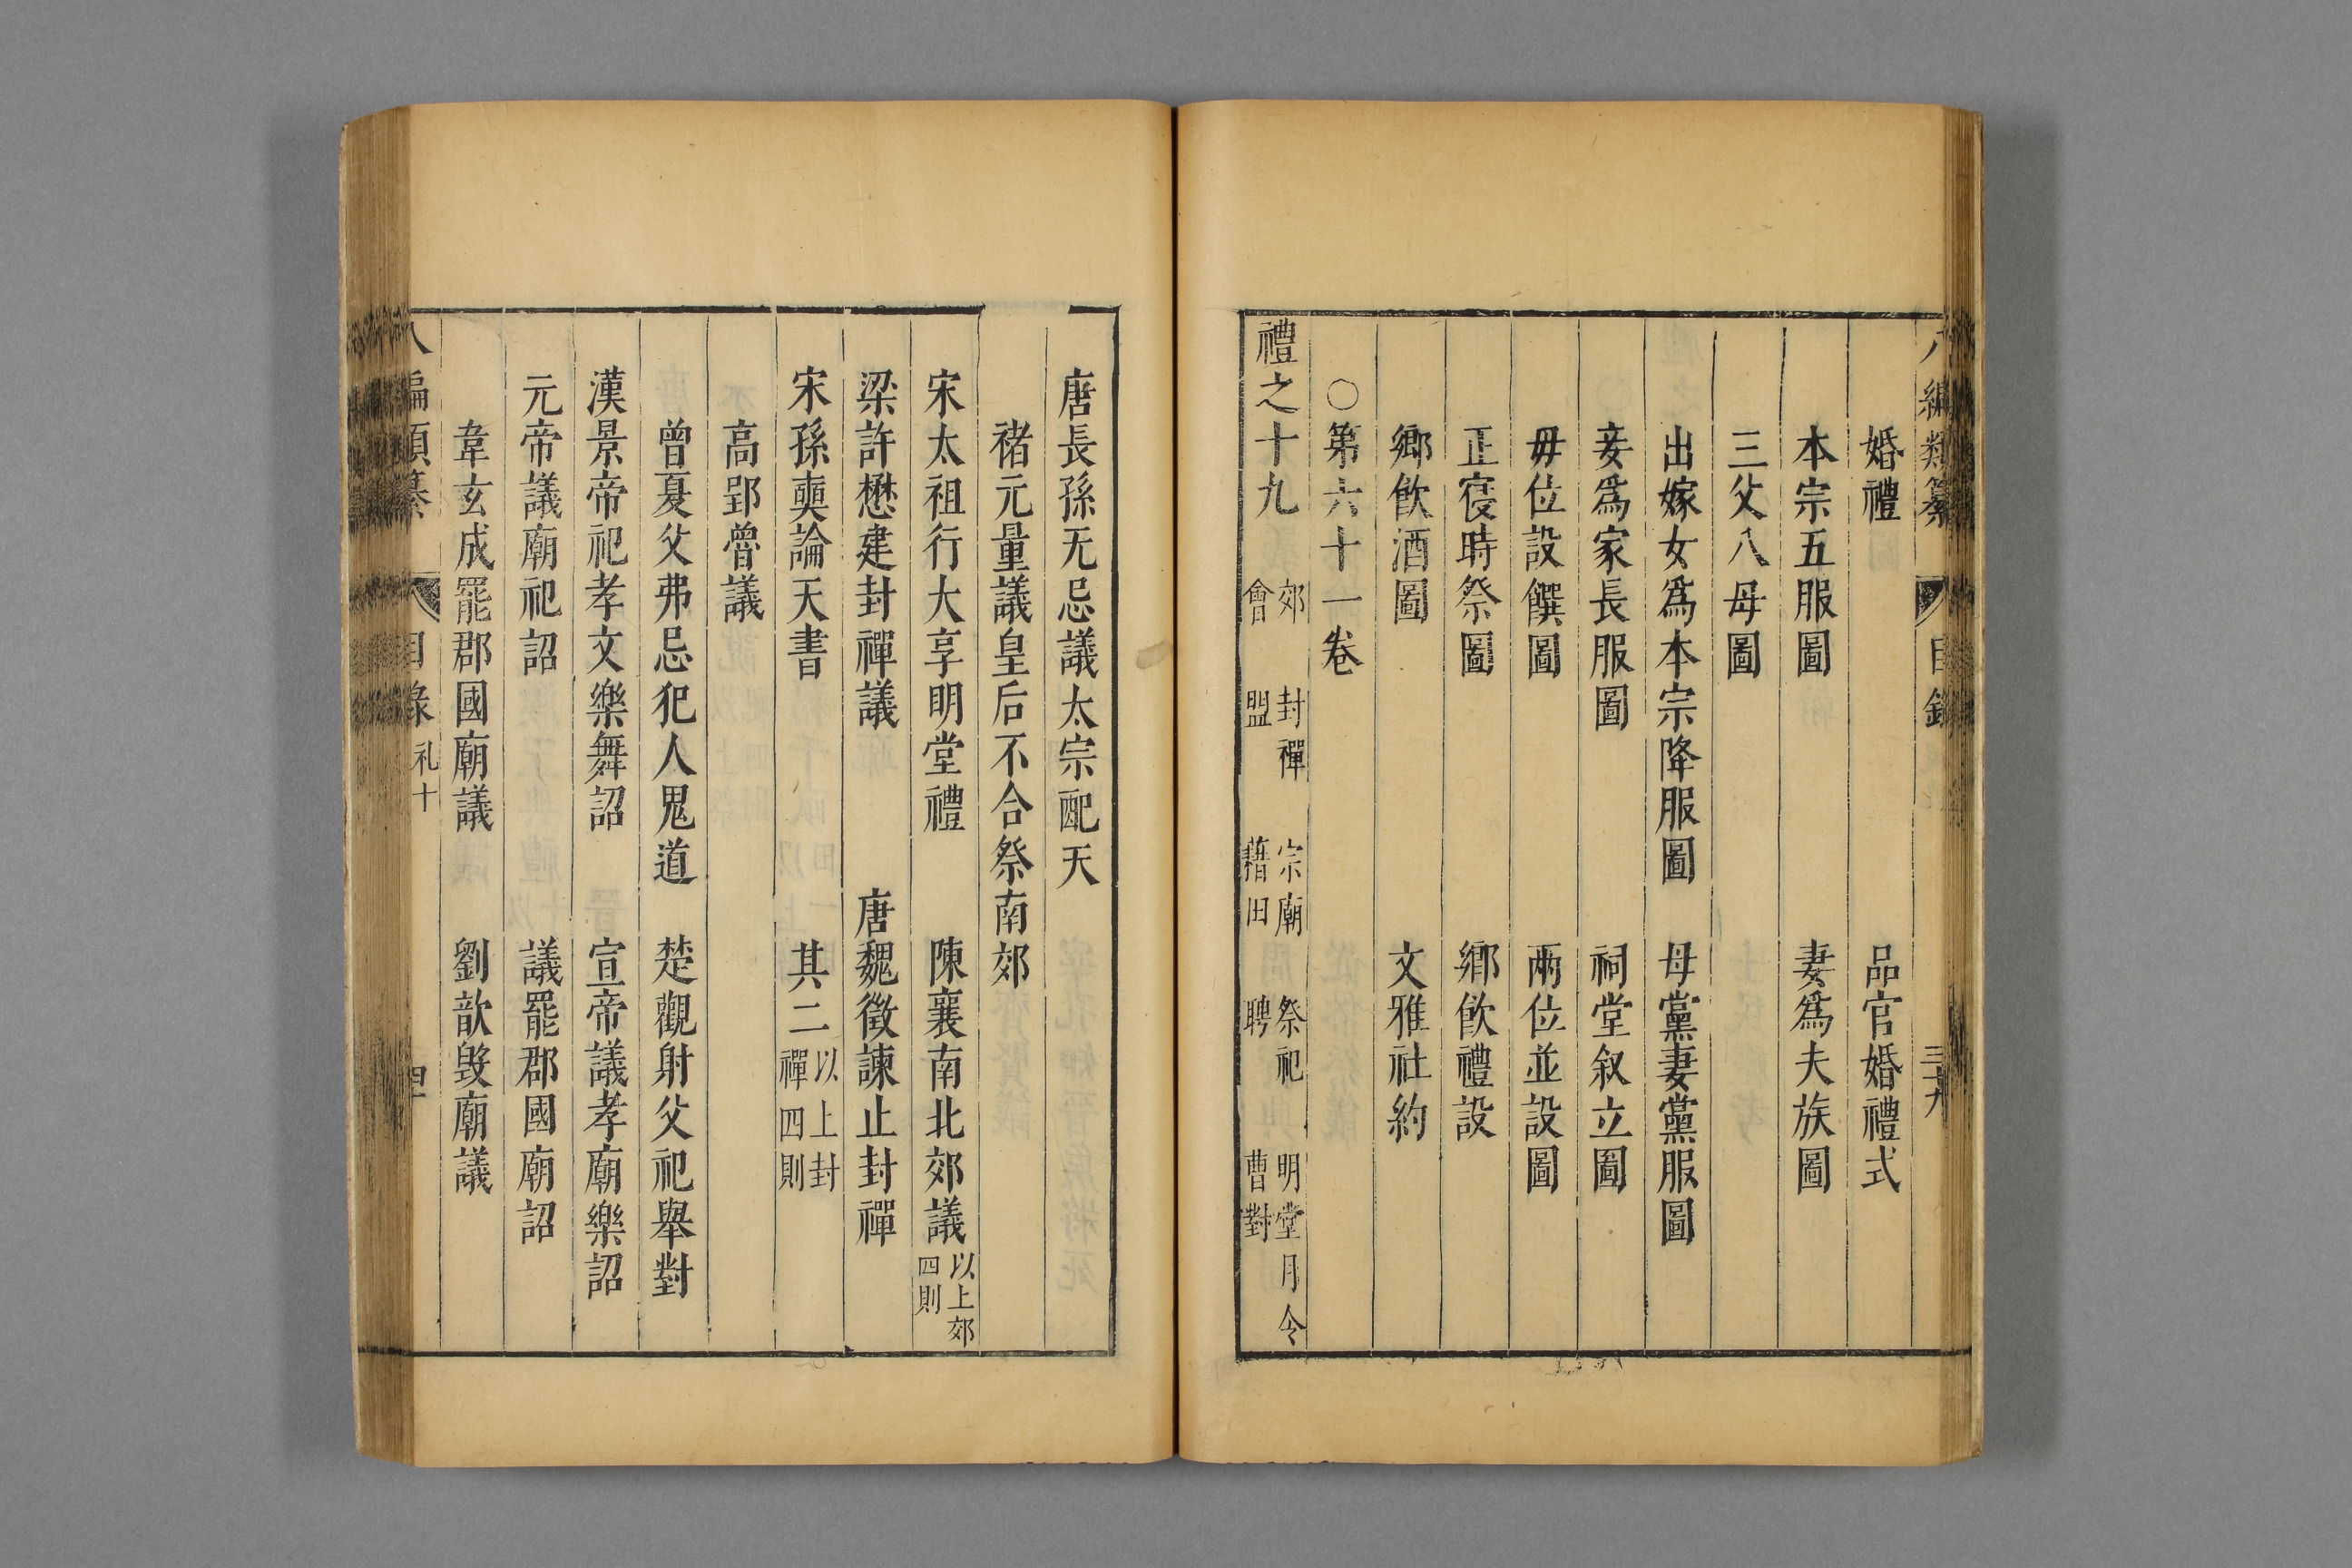 八編類纂 目錄 三十九
婚禮 品官婚禮式
本宗五服圖 妻爲夫族圖
三父八母圖
出嫁女爲本宗降服圖 母黨妻黨服圖
妾爲家長服圖 祠堂叙立圖
毋位設饌圖 兩位並設圖
正寢時祭圖 鄉飮禮設
鄉飮酒圖 文雅社約
○第六十一卷
禮之十九 郊 封禪 宗廟 祭祀 明堂月令
會 盟 藉田 聘 曹對
唐長孫无忌議太宗配天
褚元量議皇后不合祭南郊
宋太祖行大享明堂禮 陳襄南北郊議 以上郊
四則
梁許懋建封禪議 唐魏徵諫止封禪
宋孫奭論天書 其二 以上封
禪四則
高郢魯議
曾夏父弗忌犯人鬼道 楚觀射父祀舉對
漢景帝祀孝文樂舞詔 宣帝議孝廟樂詔
元帝議廟祀詔 議罷郡國廟詔
韋玄成罷郡國廟議 劉歆毀廟議
八編類纂 目錄 礼十 四